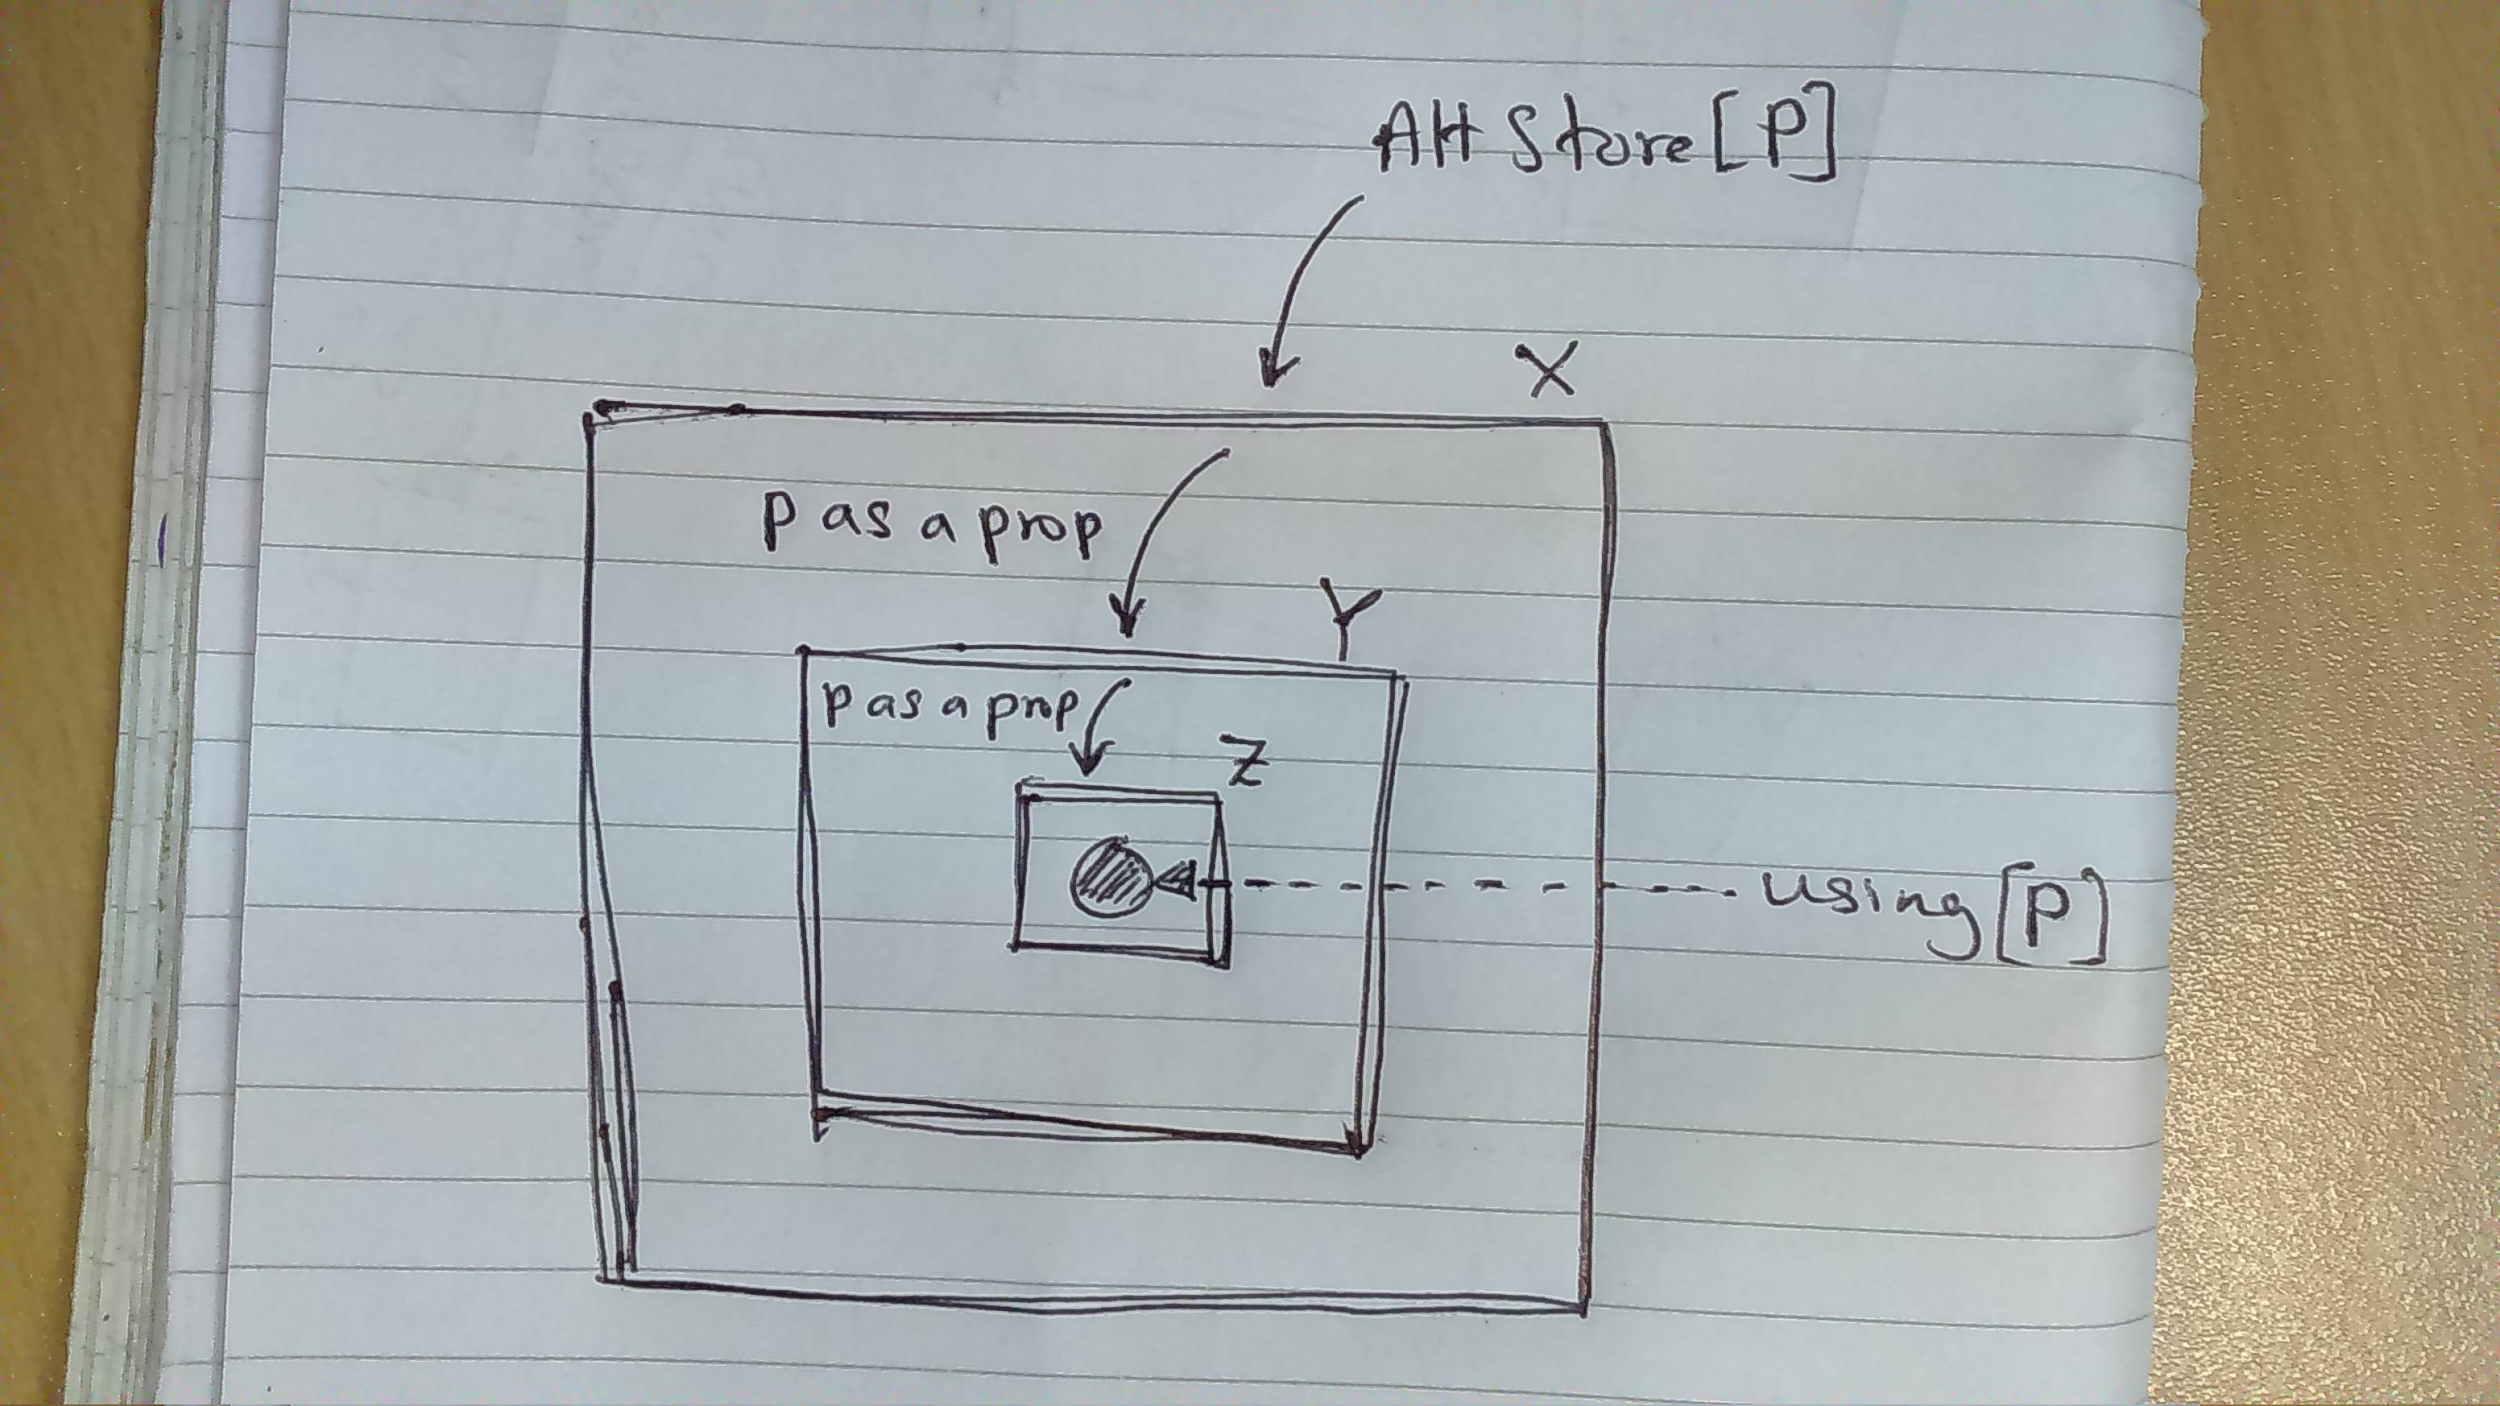 AH Store[P]
X
p as a prop
Y
p as a prop
Z
using[P]